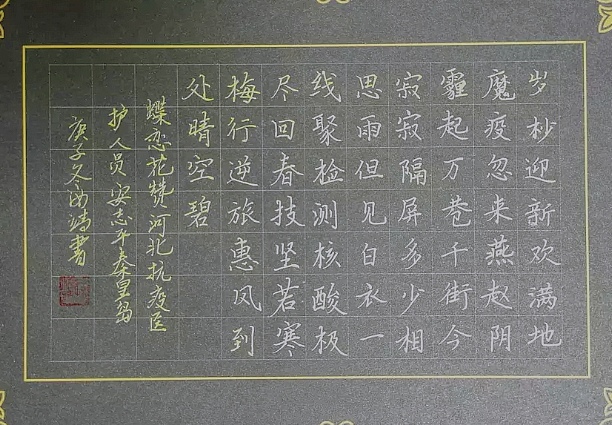 岁杪迎新欢满地
魔疫忽来燕赵阴
霾起万巷千街今
寂寂隔屏多少相
思雨但见白衣一
线聚检测核酸极
尽回春技坚若寒
梅行逆旅惠风到
处晴空碧
蝶恋花赞河北抗疫医
护人员安志平秦皇岛
庚子冬书